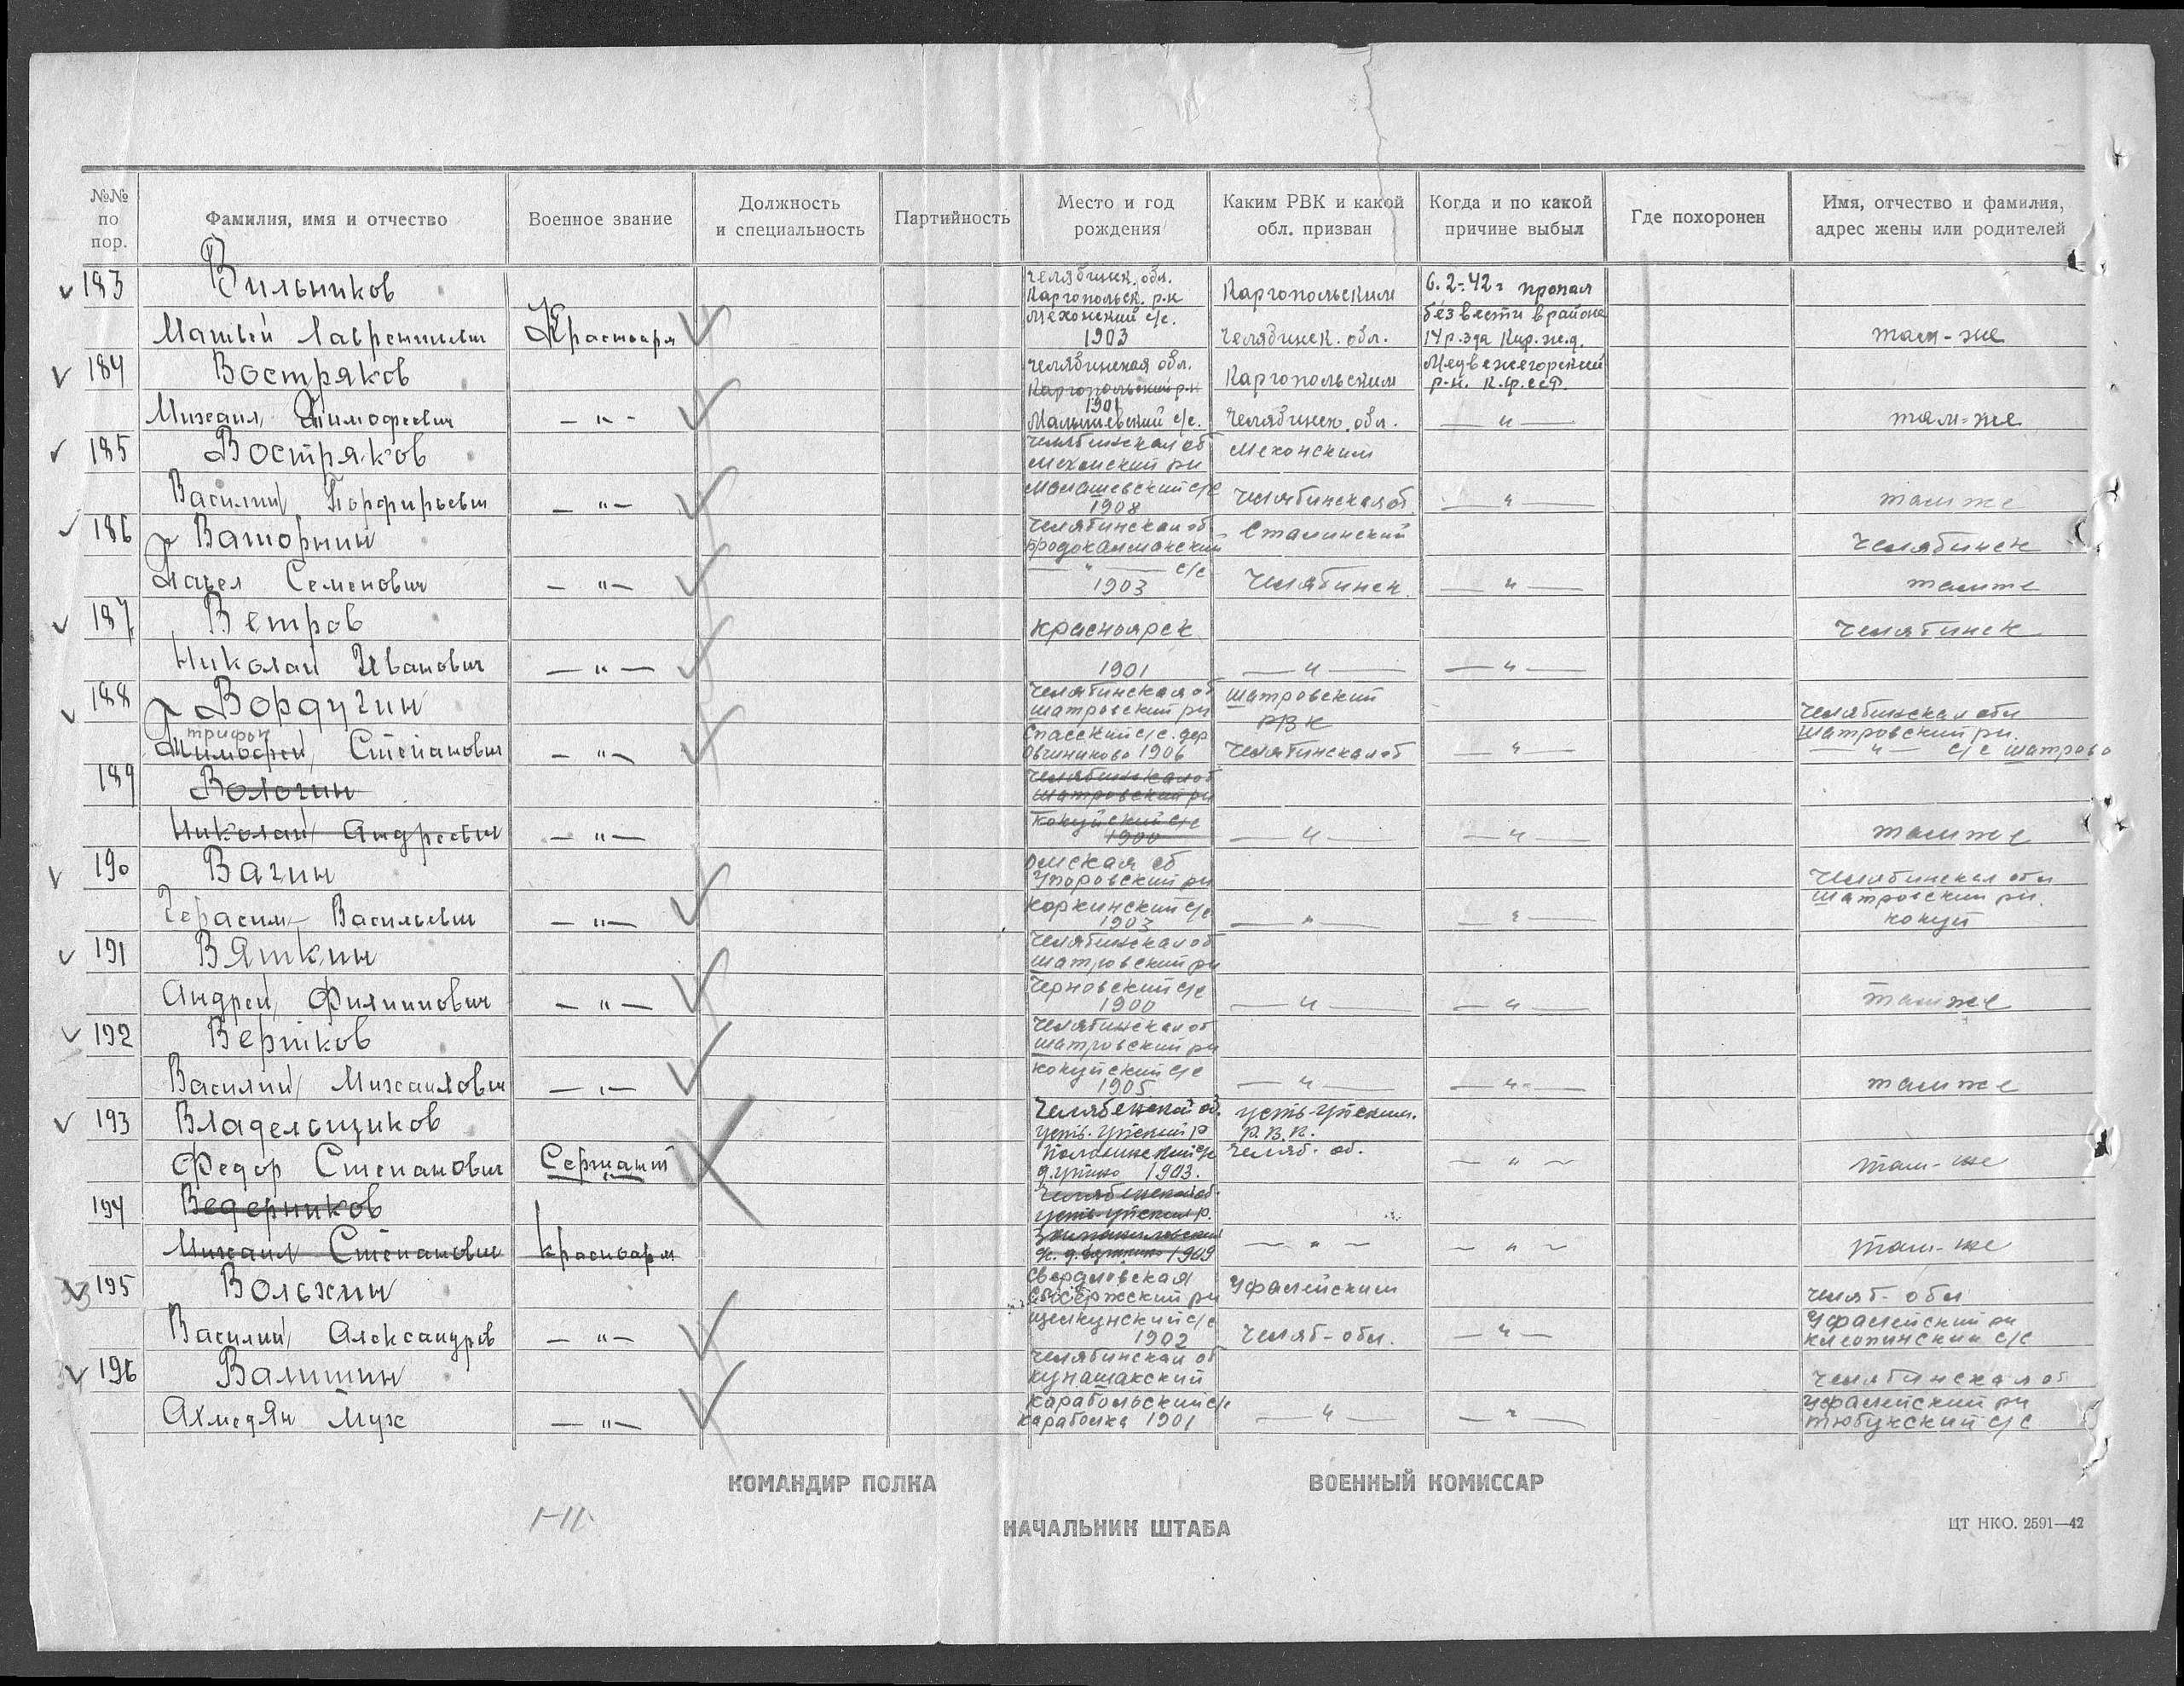 №№ по пор.
Фамилия, имя и отчество
Военное звание
Должность и специальность
Партийность
Место и год рождения
Каким РВК и какой обл. призван
Когда и по какой причине выбыл
Где похоронен
Имя, отчество и фамилия, адрес жены или родителей
183 Вильников Челябинск. обл. Каргопольск. р-н Каргопольским 6.2-42г пропал
Матвей Лаврентьевич Красноарм Мехонский с/с. 1903 Челябинск. обл. без вести в районе 14 р-зда Кир. ж.д. там-же
184 Востряков Челябинская обл. Каргопольский р-н Каргопольским Медвежегорский р-н. К.Ф.ССР.
Михаил Тимофеевич — " — 1901 Малышевский с/с. Челябинск. обл. — " — там-же
185 Востряков Челябинская об Мехонский рн Мехонским
Василий Порфирьевич — " — 1908 Челябинская об — " — там же
186 Ваторнин Челябинская об. Бродокалмакский Сталинский Челябинск
Павел Семенович — " — — " — с/с 1903 Челябинск. — " — там же
187 Ветров Красноярск Челябинск
Николай Иванович — " — 1901 — " — — " —
188 Вордугин Челябинская об Шатровский рн Шатровский РВК Челябинская обл
трифон
Тимофей Степанович — " — Спасский с/с. дер Овчиниково 1906 Челябинская об — " — Шатровский рн. — " — с/с Шатрово
189 Вологин Челябинская об Шатровский рн
Николай Андреевич — " — Кокуйский с/с 1900 — " — — " — там же
190 Вагин Омская об Упоровский рн Челябинская обл
Герасим Васильевич — " — Коркинский с/с 1903 — " — — " — Шатровский рн. Кокуй
191 Вяткин Челябинская об Шатровский рн
Андрей Филиппович — " — Черновский с/с 1900 — " — — " — там же
192 Верников Челябинская об Шатровский рн
Василий Михайлович — " — Кокуйский с/с 1905 — " — — " — там же
193 Владельщиков Челябенской об. Усть-Уйский р Усть-Уйским. Р.В.К.
Федор Степанович Сержант 1903. Челяб. об. — " — там-же
194 Ведерников Челябенской об. Усть-Уйский р.
Михаил Степанович Красноарм 1909 — " — — " — там-же
195 Волжин Свердловская Сысержский рн Уфалейским Челяб-обл
Василий Александров — " — Щелкунский с/с 1902 Челяб-обл. — " — Уфалейский рн с/с
196 Валитин Челябинская об Кунашакский Челябинская об
Ахмедян Муж — " — Карабольский с/с Караболка 1901 — " — — " — Уфалейский рн Тюбукский с/с
КОМАНДИР ПОЛКА
ВОЕННЫЙ КОМИССАР
НАЧАЛЬНИК ШТАБА
ЦТ НКО. 2591—42